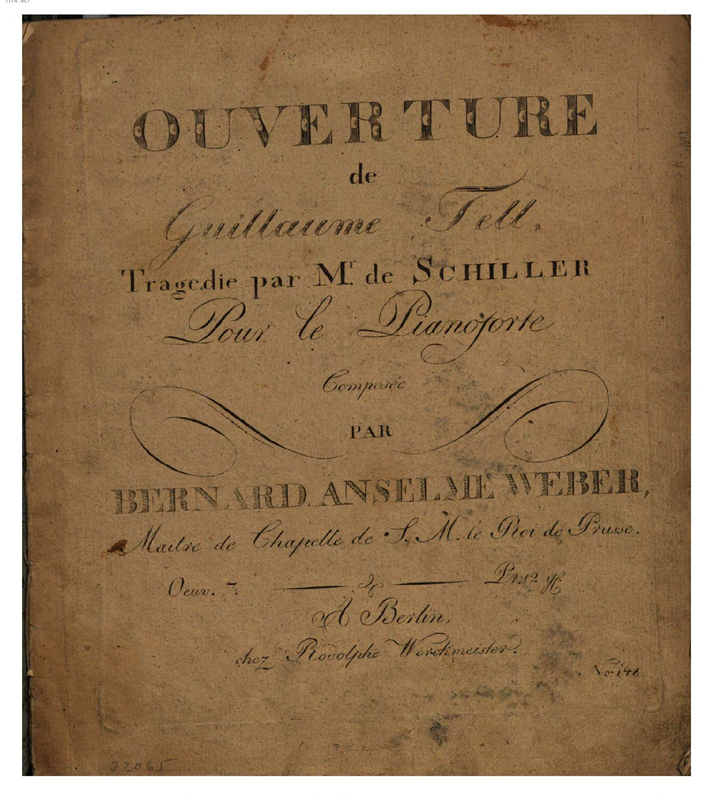 OUVERTURE
de
Guillaume Tell,
Tragedie par Mr. de SCHILLER
Pour le Pianoforte
Composée
PAR
BERNARD ANSELME WEBER,
Maitre de Chapelle de S. M. le Roi de Prusse.
Oeuv. 7. Pr. 12
A Berlin,
chez Rodolphe Werckmeister.
No. 148